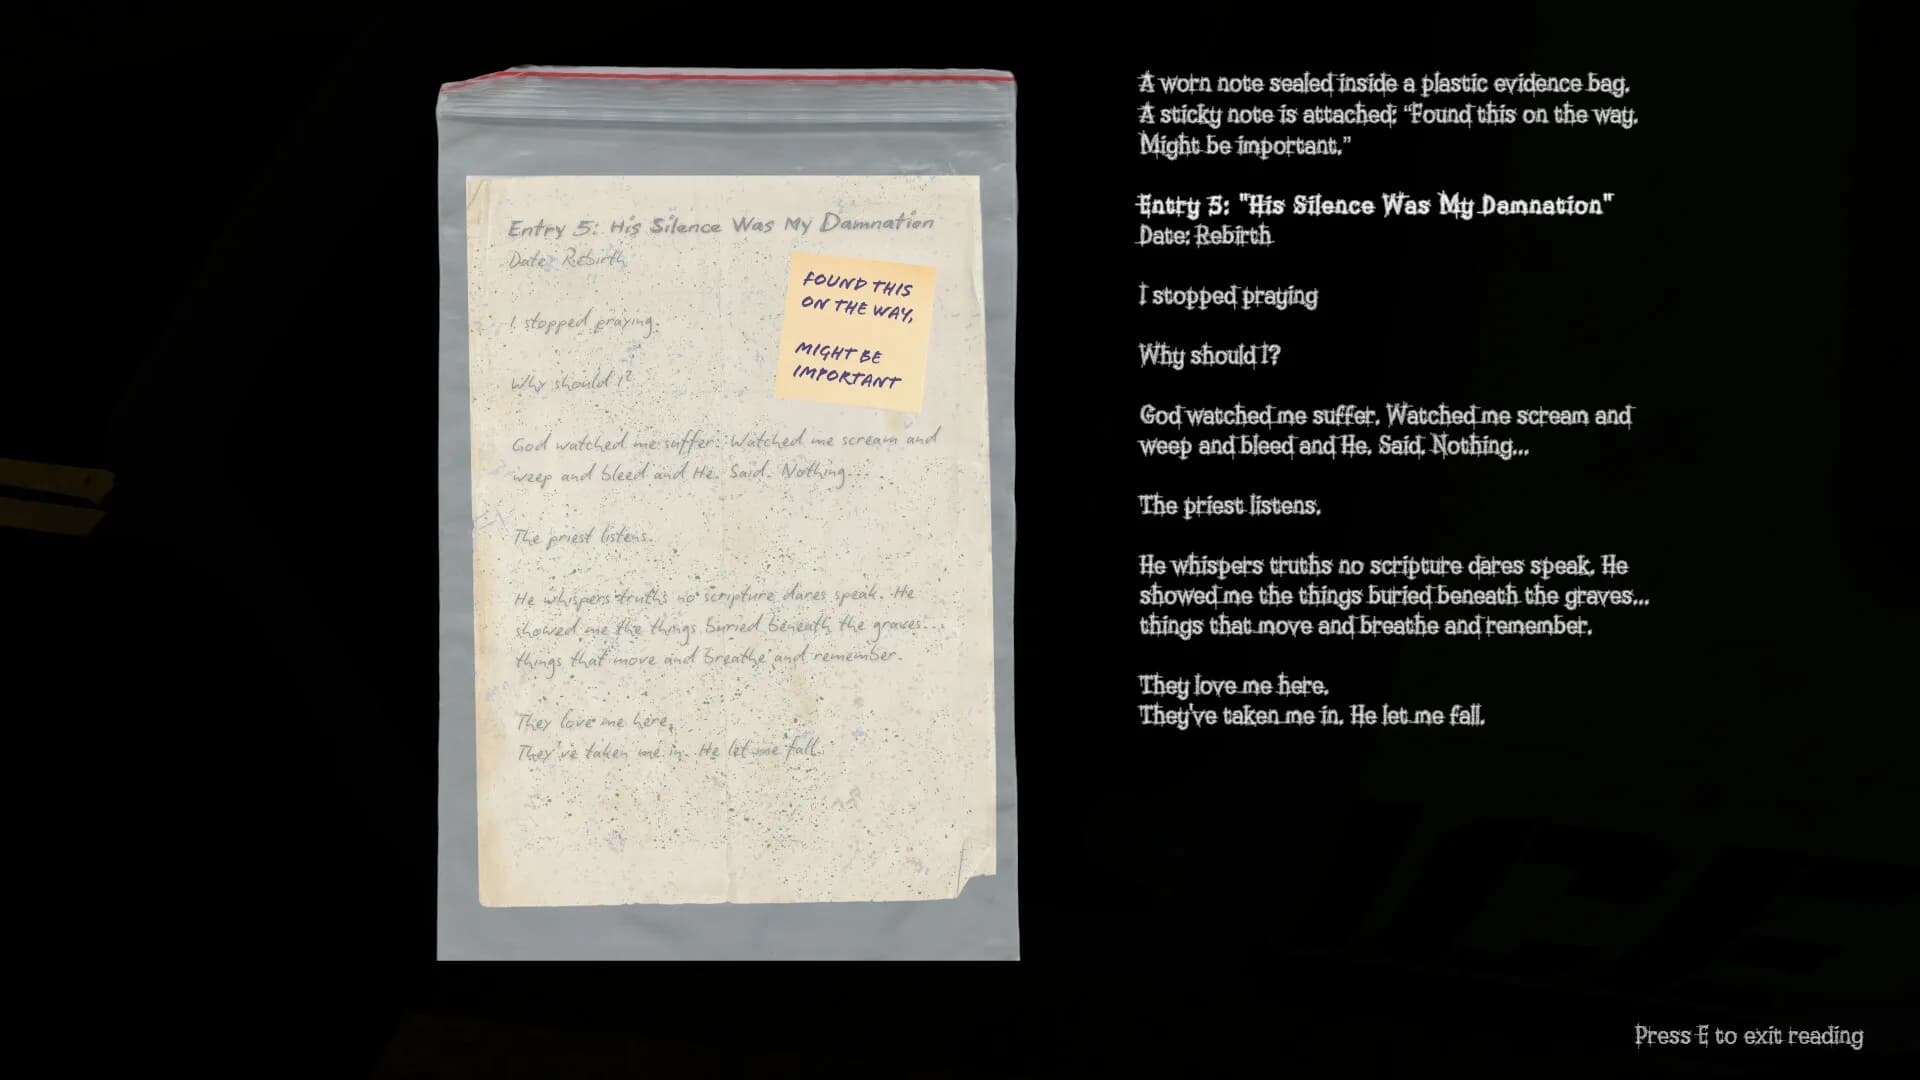 Entry 5: His Silence Was My Damnation
Date: Rebirth
FOUND THIS
ON THE WAY,
MIGHT BE
IMPORTANT
I stopped praying.
Why should I?
God watched me suffer. Watched me scream and
weep and bleed and He. Said. Nothing...
The priest listens.
He whispers truths no scripture dares speak. He
showed me the things buried beneath the graves...
things that move and breathe and remember.
They love me here.
They've taken me in. He let me fall.
A worn note sealed inside a plastic evidence bag.
A sticky note is attached: “Found this on the way.
Might be important.”
Entry 5: "His Silence Was My Damnation"
Date: Rebirth
I stopped praying
Why should I?
God watched me suffer. Watched me scream and
weep and bleed and He. Said. Nothing...
The priest listens.
He whispers truths no scripture dares speak. He
showed me the things buried beneath the graves...
things that move and breathe and remember.
They love me here.
They've taken me in. He let me fall.
Press E to exit reading